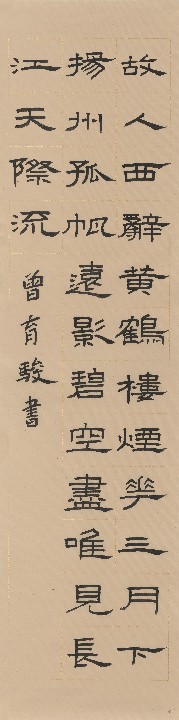 故人西辭黄鶴樓煙花三月下
揚州孤帆遠影碧空盡唯見長
江天際流
曾育駿書